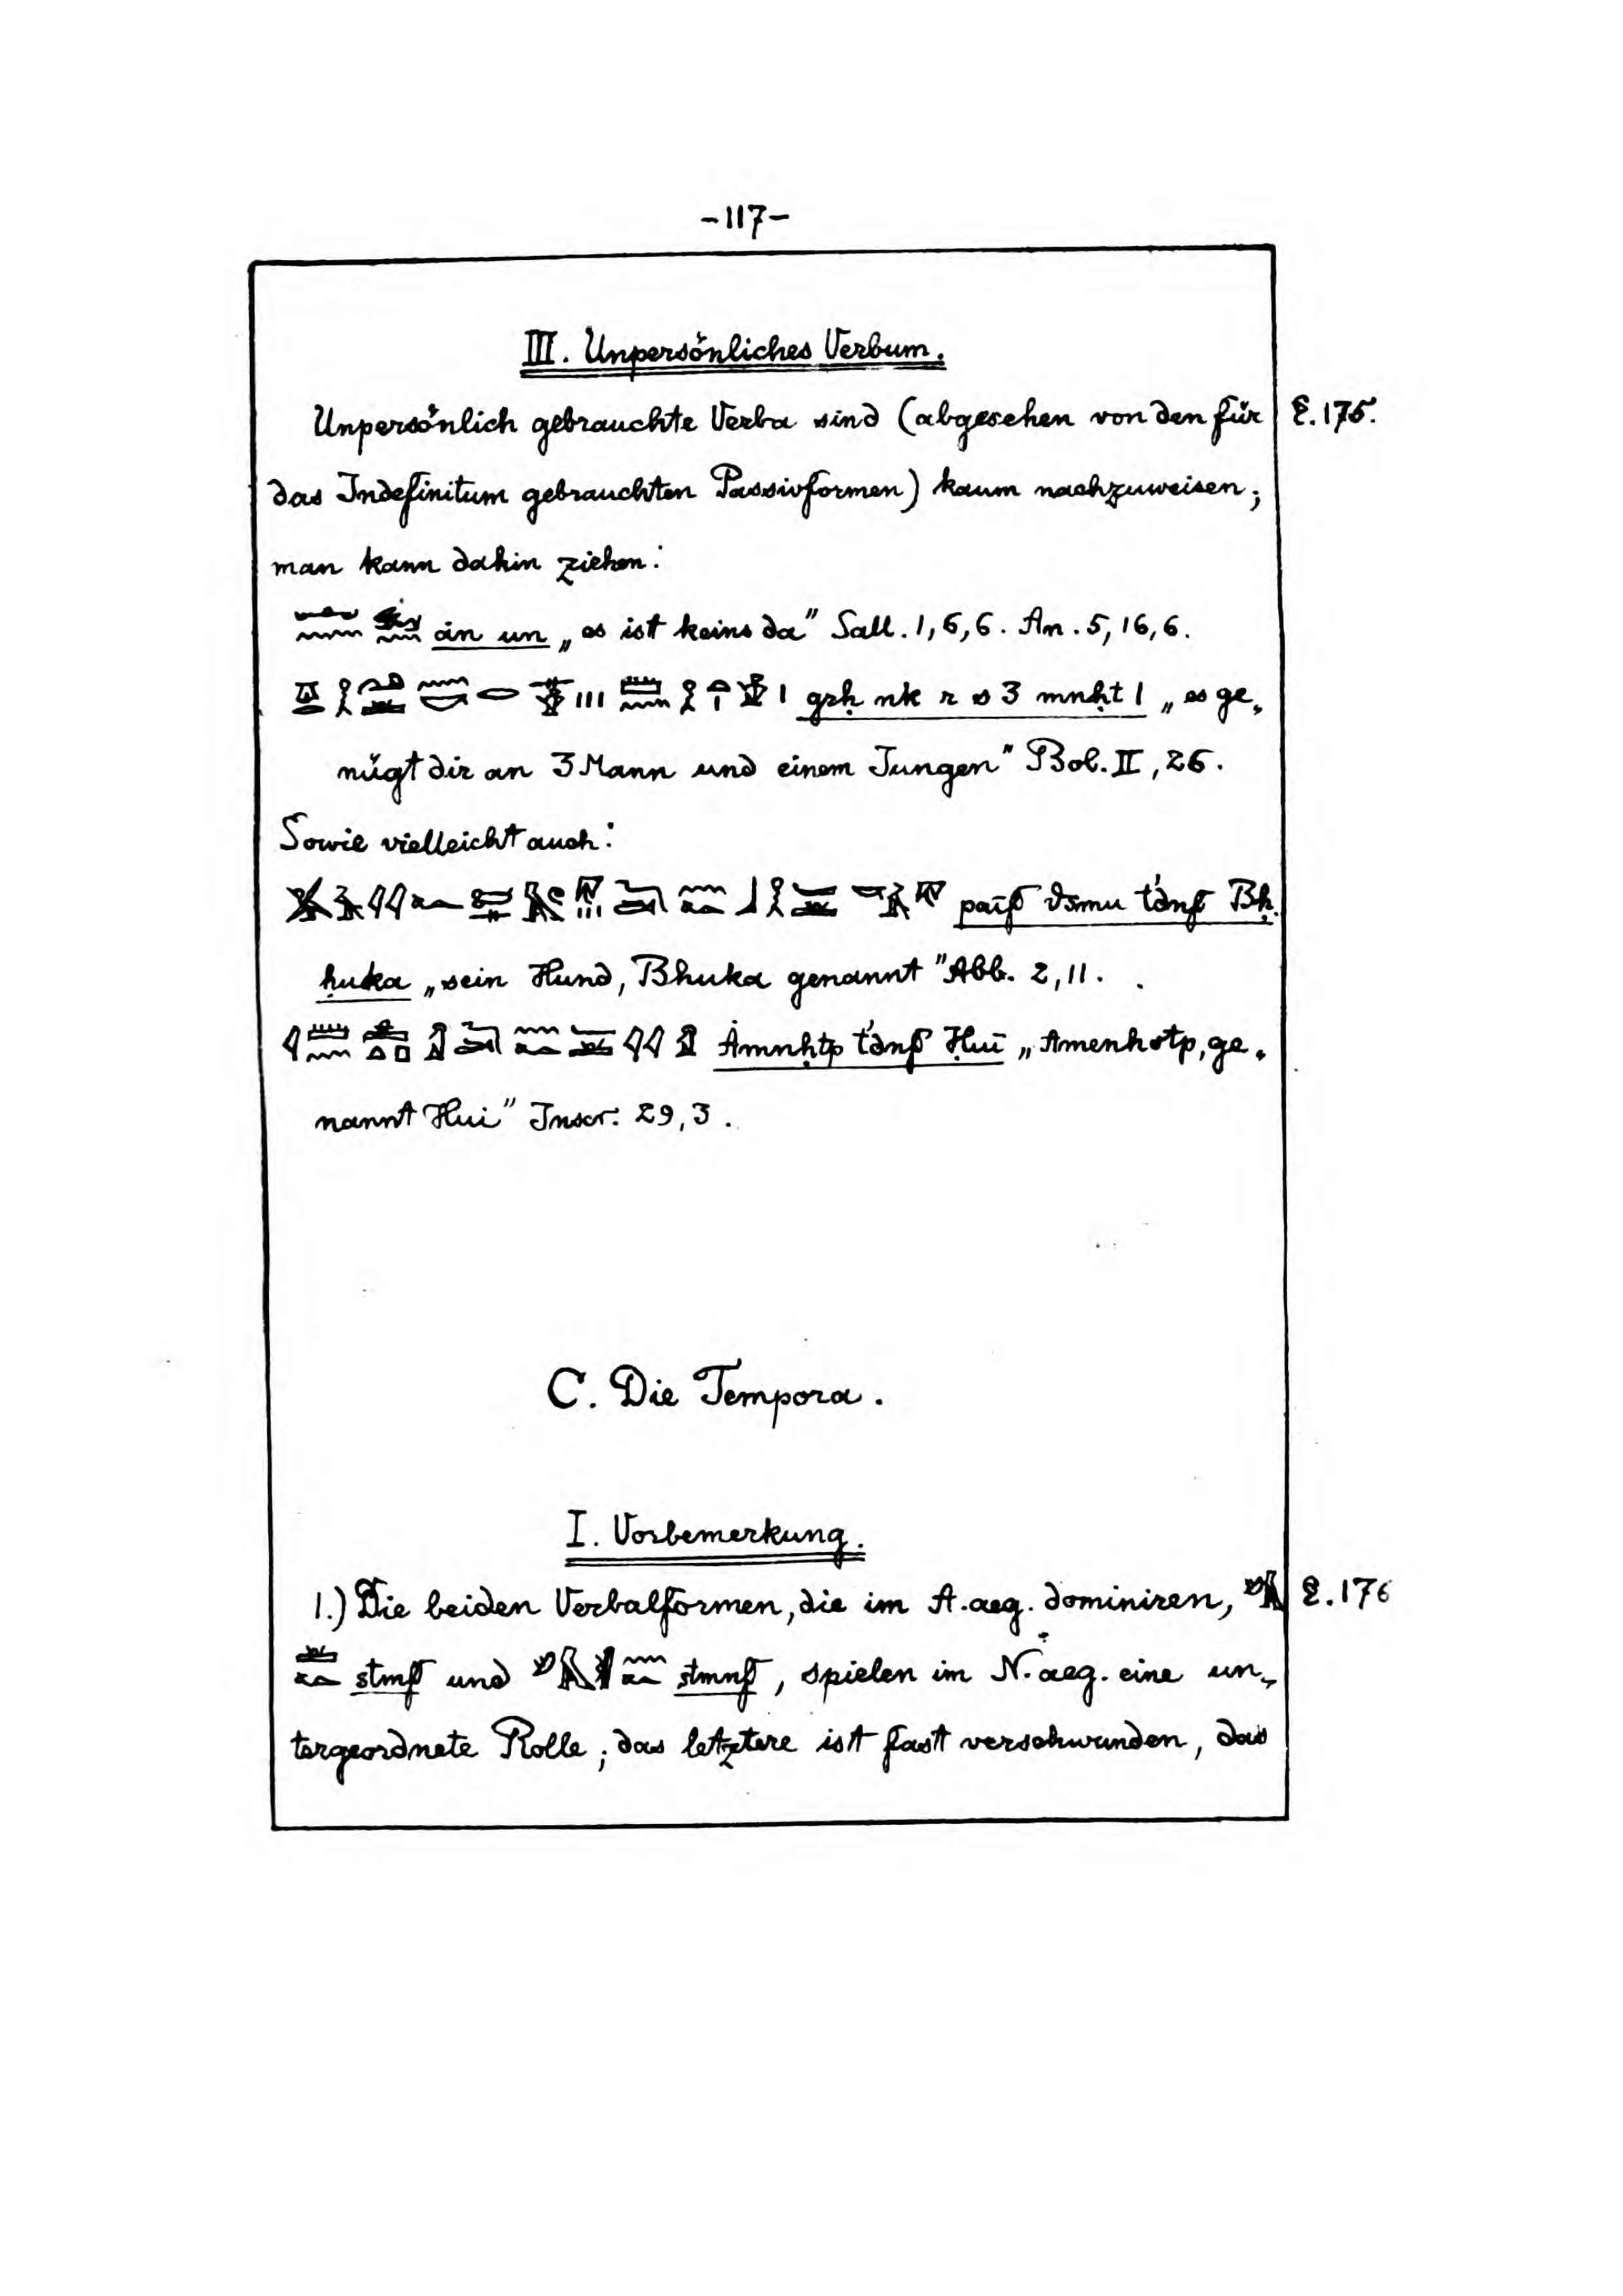 -117-
III. Unpersönliches Verbum.
Unpersönlich gebrauchte Verba sind (abgesehen von den für §.175.
das Indefinitum gebrauchten Passivformen) kaum nachzuweisen;
man kann dahin ziehen:
án un „es ist keins da" Sall. 1,6,6. An. 5,16,6.
grḥ nk r s 3 mnḥt 1 „es ge„
nügt dir an 3 Mann und einem Jungen" Bol. II, 26.
Sowie vielleicht auch:
Bḥ
ḥuka „sein Hund, Bhuka genannt" Abb. 2,11.
Ȧmnḥtp Ḥui „Amenhotp, ge„
nannt Hui" Inscr. 29,3.
C. Die Tempora.
I. Vorbemerkung.
1.) Die beiden Verbalformen, die im A.aeg. dominiren, §.176
stmf und stmnf, spielen im N.aeg. eine un„
tergeordnete Rolle; das letztere ist fast verschwunden, das